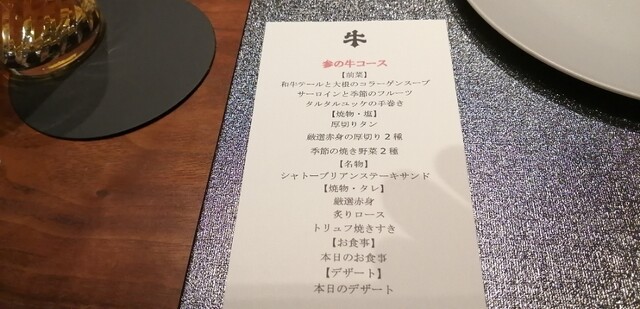 牛
参の牛コース
【前菜】
和牛テールと大根のコラーゲンスープ
サーロインと季節のフルーツ
タルタルユッケの手巻き
【焼物・塩】
厚切りタン
厳選赤身の厚切り２種
季節の焼き野菜２種
【名物】
シャトーブリアンステーキサンド
【焼物・タレ】
厳選赤身
炙りロース
トリュフ焼きすき
【お食事】
本日のお食事
【デザート】
本日のデザート